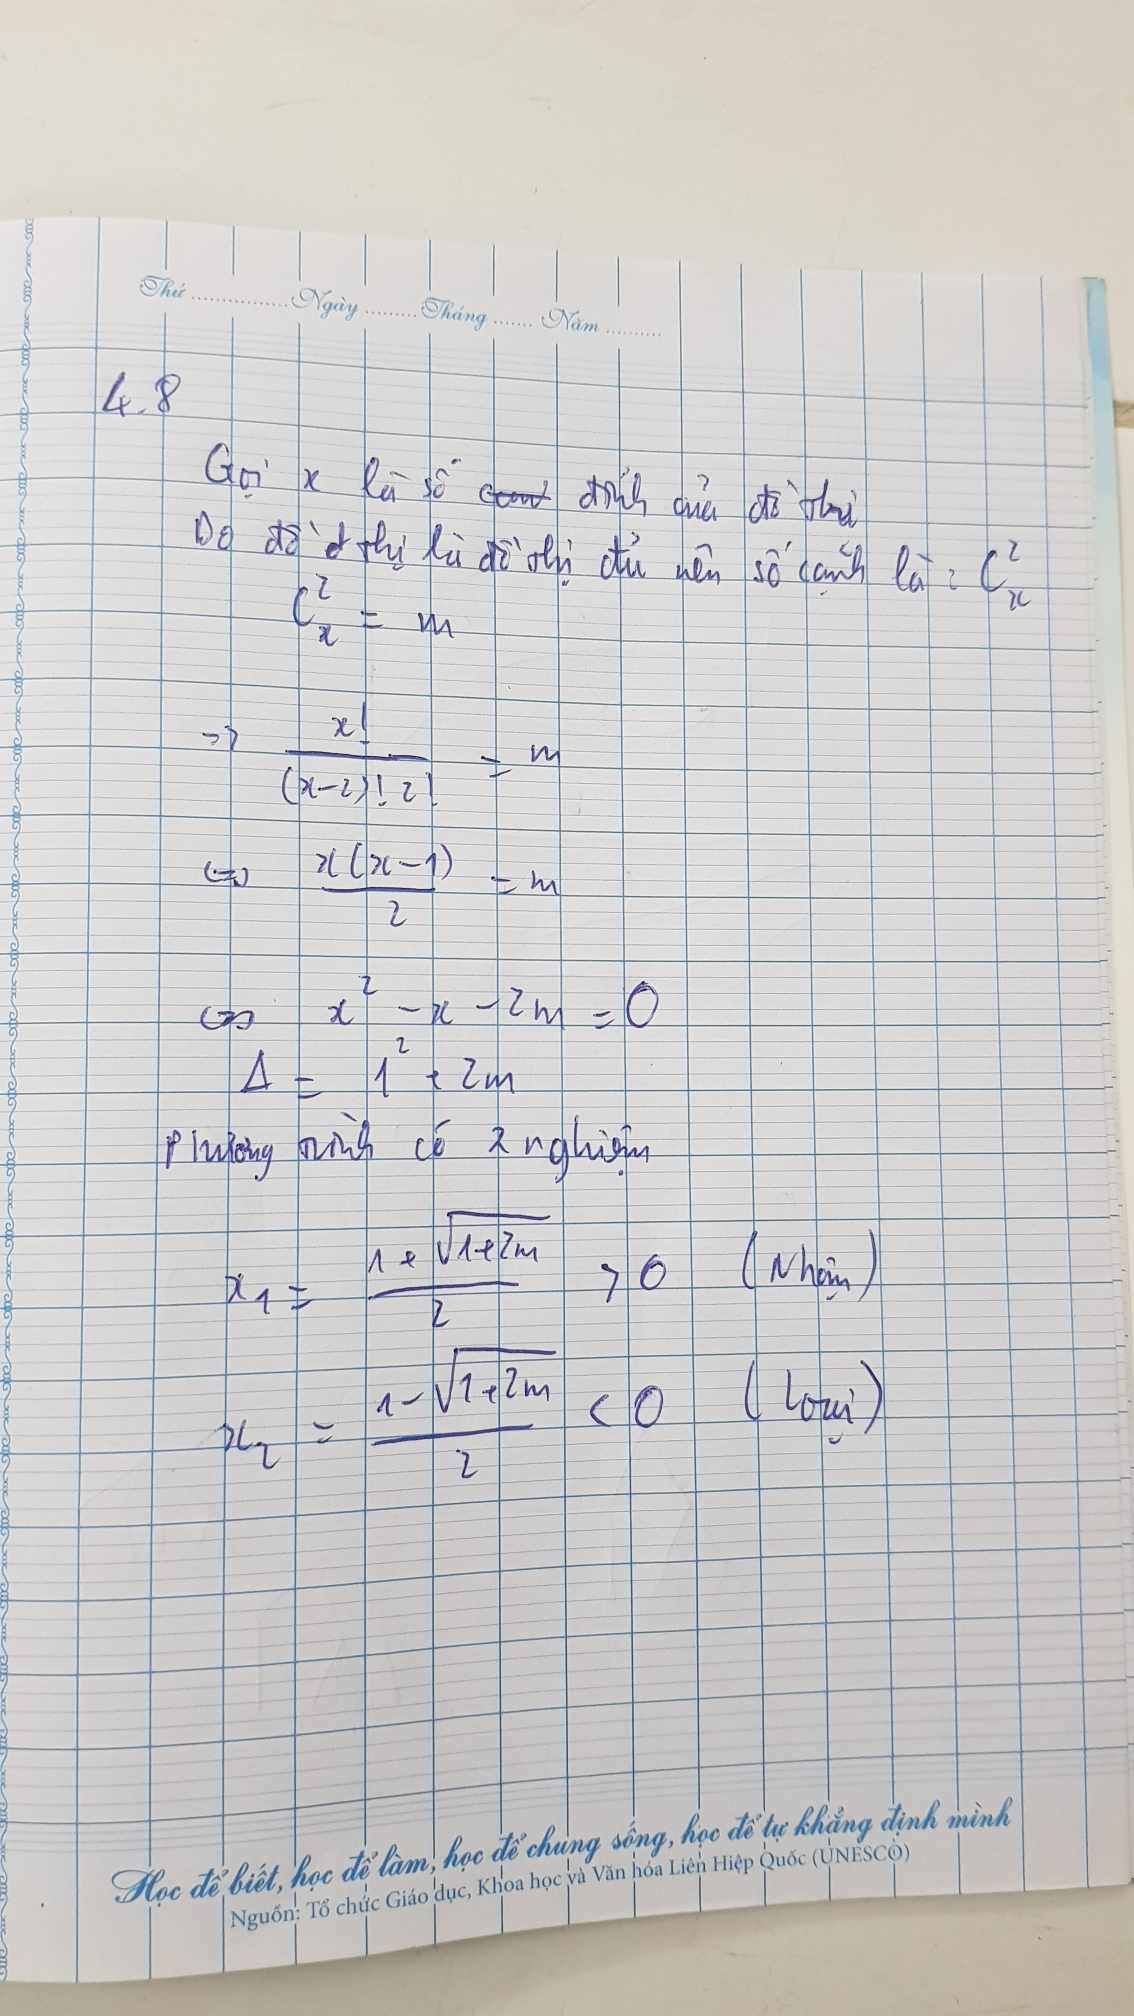 Thứ ................ Ngày ......... Tháng ....... Năm ..........
4.8
Gọi x là số đỉnh của đồ thị
Do đồ thị là đồ thị đủ nên số cạnh là: C²ₓ
C²ₓ = m
=> x! / ((x-2)! 2!) = m
<=> x(x-1) / 2 = m
<=> x² - x - 2m = 0
Δ = 1² + 2m
Phương trình có 2 nghiệm
x₁ = (1 + √(1+2m)) / 2 > 0 (Nhận)
x₂ = (1 - √(1+2m)) / 2 < 0 (Loại)
Học để biết, học để làm, học để chung sống, học để tự khẳng định mình
Nguồn: Tổ chức Giáo dục, Khoa học và Văn hóa Liên Hiệp Quốc (UNESCO)